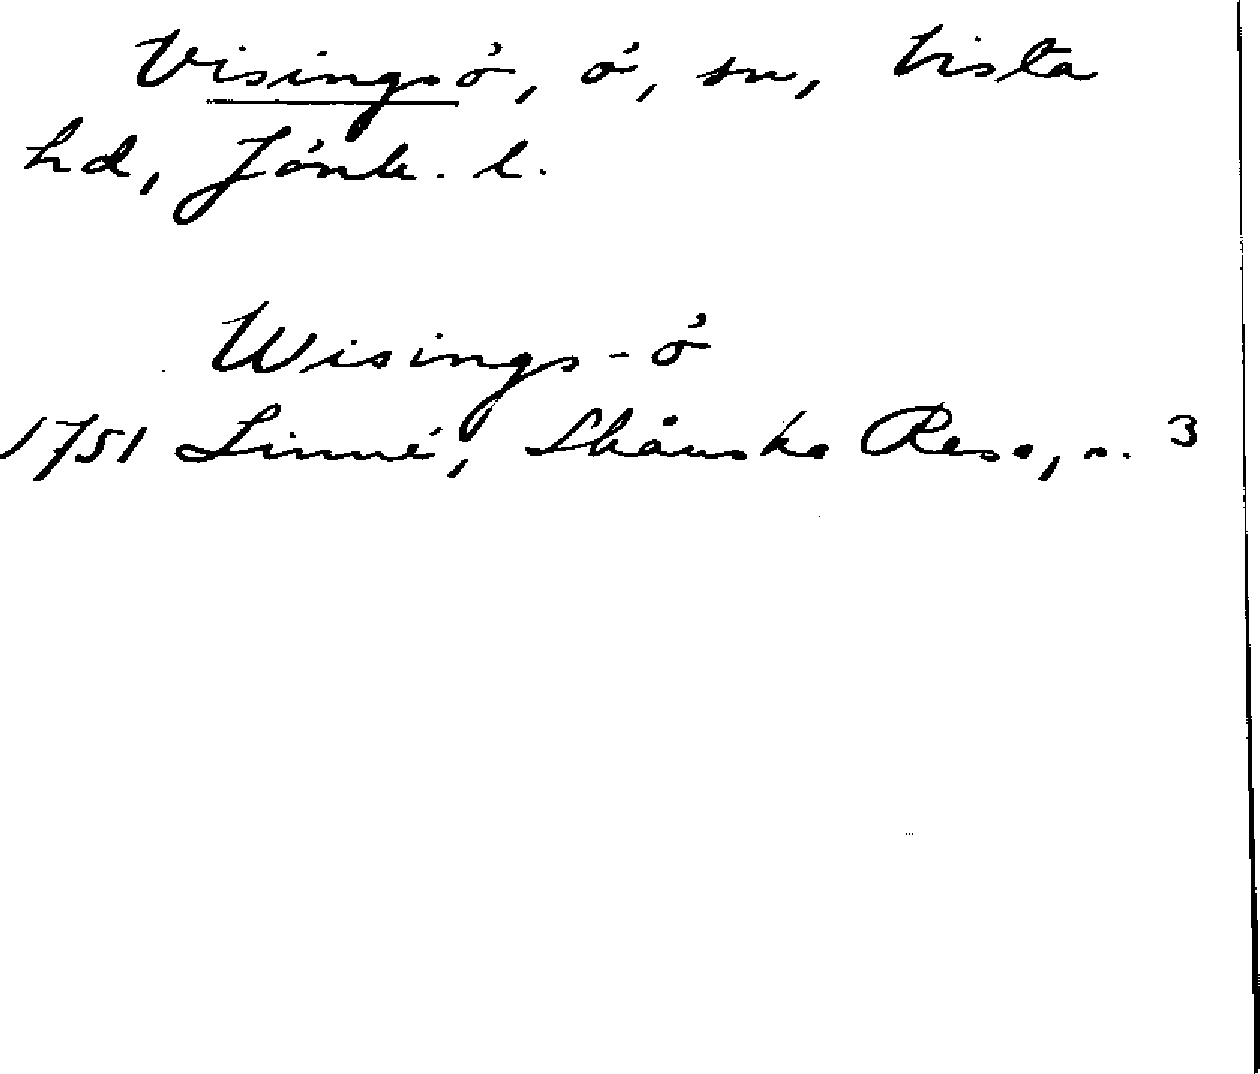 Visingsö, ö, sn, Vista
hd, Jönk. l.
Wisings-ö
1751 Linné, Skånska Resa, s. 3